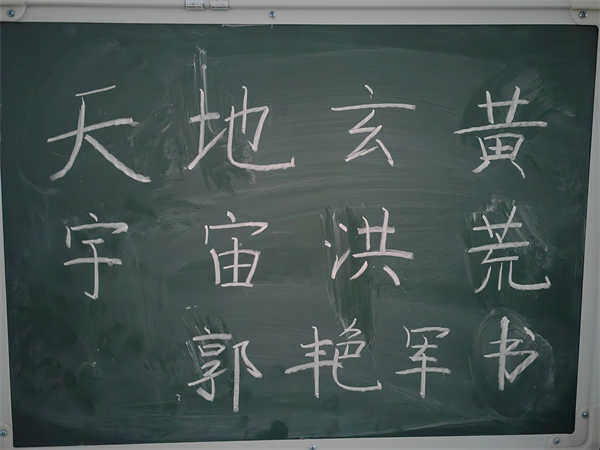 天地玄黄
宇宙洪荒
郭艳军书